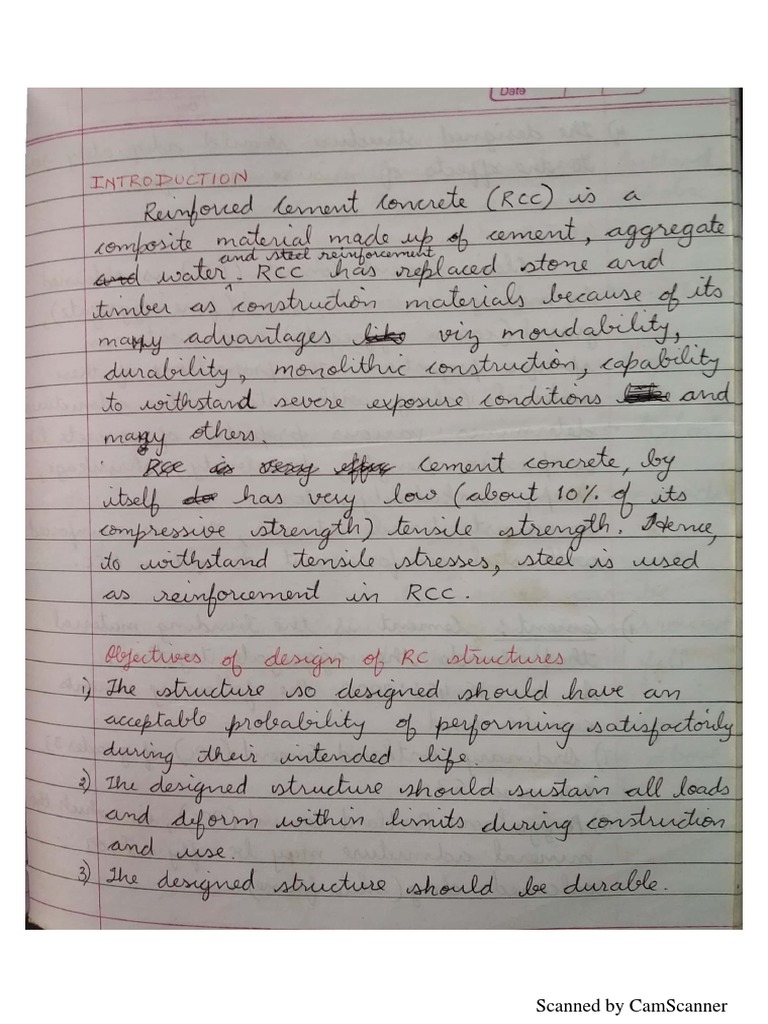 Date
INTRODUCTION
Reinforced cement concrete (RCC) is a
composite material made up of cement, aggregate
and steel reinforcement
and water. RCC has replaced stone and
timber as construction materials because of its
many advantages like viz moudability,
durability, monolithic construction, capability
to withstand severe exposure conditions and
many others.
RCC is very cement concrete, by
itself has very low (about 10% of its
compressive strength) tensile strength. Hence,
to withstand tensile stresses, steel is used
as reinforcement in RCC.
Objectives of design of RC structures
1) The structure so designed should have an
acceptable probability of performing satisfactorily
during their intended life.
2) The designed structure should sustain all loads
and deform within limits during construction
and use.
3) The designed structure should be durable.
Scanned by CamScanner